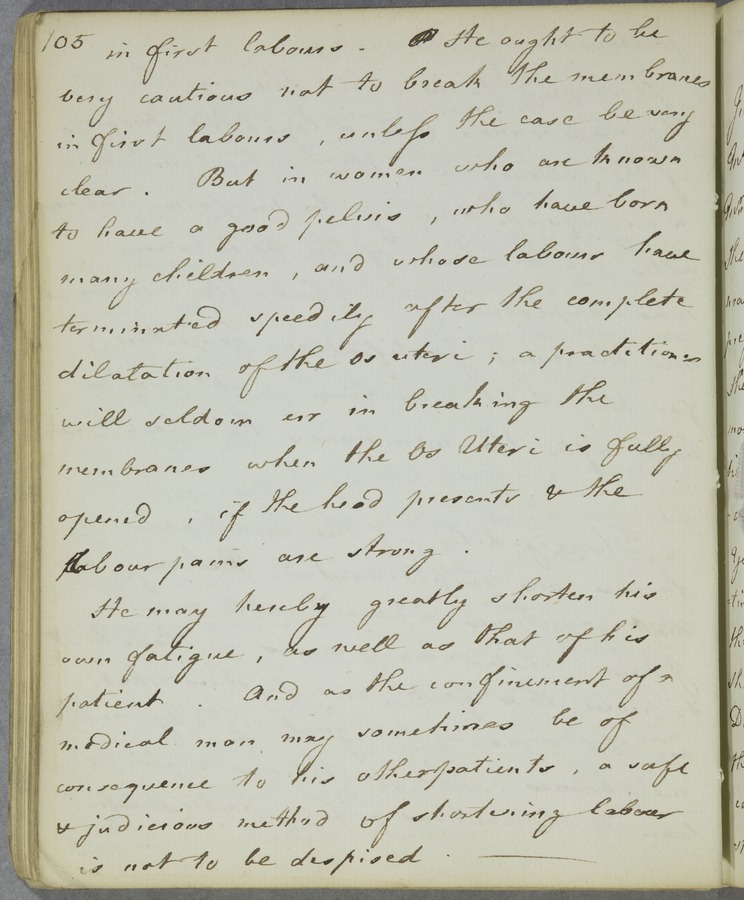 105 in first labours. He ought to be
very cautious not to break the membranes
in first labours, unless the case be very
clear. But in women who are known
to have a good pelvis, who have born
many children, and whose labours have
terminated speedily after the complete
dilatation of the os uteri; a practitioner
will seldom err in breaking the
membranes when the Os Uteri is fully
opened, if the head presents & the
labour pains are strong.
He may hereby greatly shorten his
own fatigue, as well as that of his
patient. And as the confinement of a
medical man may sometimes be of
consequence to his other patients, a safe
& judicious method of shortening labour
is not to be despised.